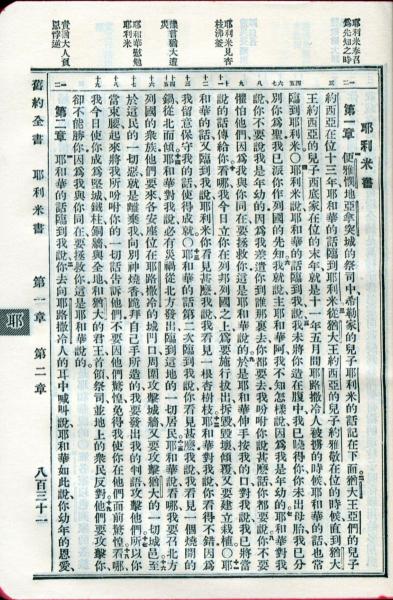 耶利米奉召
為先知之時
耶利米見杏
枝沸釜
預言猶大遭
災
耶和華慰勉
耶利米
責猶大人負
恩悖逆
耶利米書
第一章 便雅憫地亞拿突城的祭司中希勒家的兒子耶利米的話記在下面猶大王亞們的兒子
約西亞在位十三年耶和華的話臨到耶利米從猶大王約西亞的兒子約雅敬在位的時候直到猶大
王約西亞的兒子西底家在位的末年就是十一年五月間耶路撒冷人被擄的時候耶和華的話也常
臨到耶利米○耶和華的話臨到我說我未將你造在腹中我已曉得你你未出母胎我已分
別你為聖我已派你作列國的先知我就說主耶和華阿我不知怎樣說因為我是年幼的耶和華對我
說你不要說我是年幼的因為我差遣你到誰那裏去你都要去我吩咐你說甚麼話你都要說你不要
懼怕他們因為我與你同在要拯救你這是耶和華說的於是耶和華伸手按我的口對我說我已將當
說的話傳給你看哪我今日立你在列邦列國之上為要施行拔出拆毀毀壞傾覆又要建立栽植○耶
和華的話又臨到我說耶利米你看見甚麼我說我看見一根杏樹枝耶和華對我說你看得不錯因為
我留意保守我的話使得成就○耶和華的話第二次臨到我說你看見甚麼我說我看見一個燒開的
鍋從北而傾耶和華對我說必有災禍從北方發出臨到這地的一切居民耶和華說看哪我要召北方
列國的衆族他們要來各安座位在耶路撒冷的城門口周圍攻擊城牆又要攻擊猶大的一切城邑至
於這民的一切惡就是離棄我向別神燒香跪拜自己手所造的我要發出我的判語攻擊他們所以你
當束腰起來將我所吩咐你的一切話告訴他們不要因他們驚惶免得我使你在他們面前驚惶看哪
我今日使你成為堅城鐵柱銅牆與全地和猶大的君王首領祭司並地上的衆民反對他們要攻擊你
卻不能勝你因為我與你同在要拯救你這是耶和華說的
第二章 耶和華的話臨到我說你去向耶路撒冷人的耳中喊叫說耶和華如此說你幼年的恩愛
舊約全書 耶利米書 第一章 第二章 八百三十一
耶